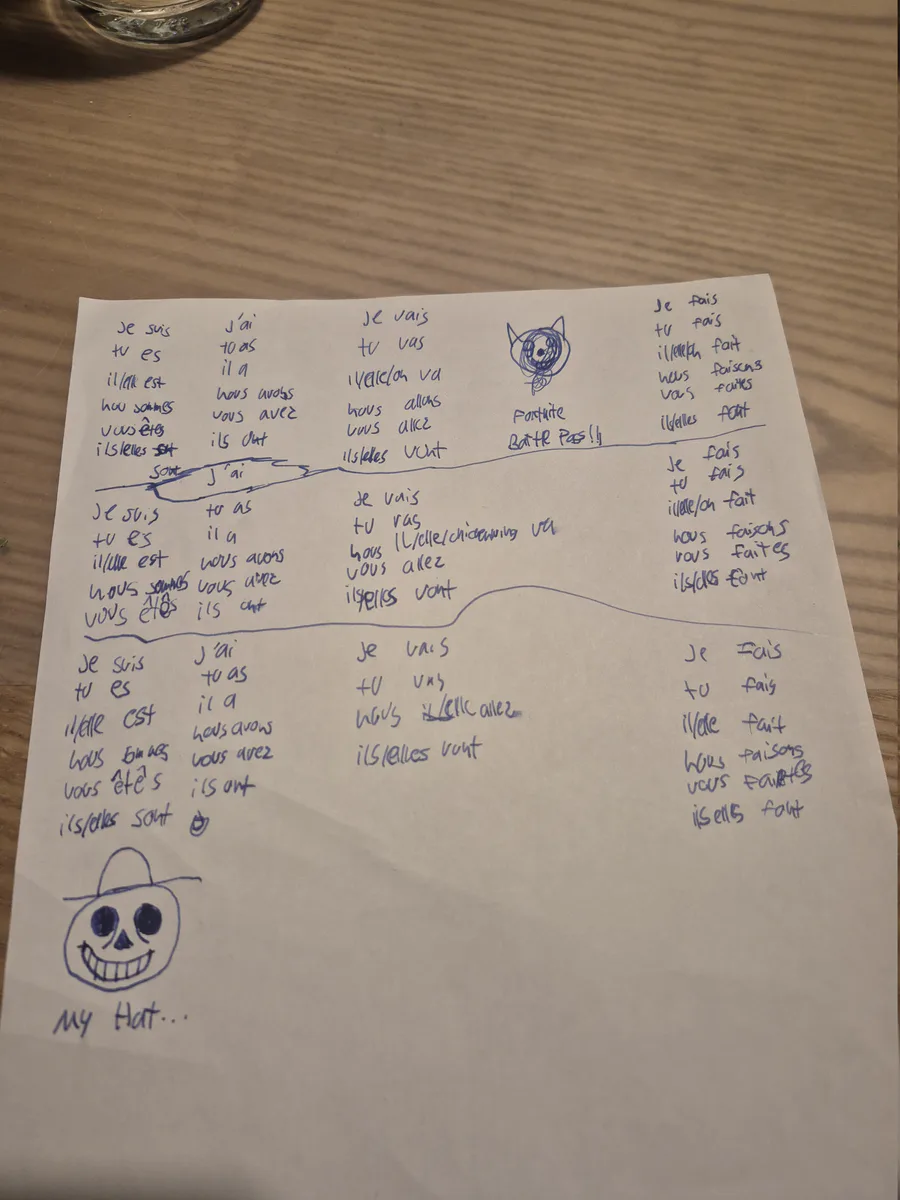 Je suis
tu es
il/elle est
nou sommes
vous êtes
ils/elles
sont
j'ai
tu as
il a
nous avons
vous avez
ils ont
Je vais
tu vas
il/elle/on va
nous allons
vous allez
ils/elles vont
Fortnite
Battle Pass!!
Je fais
tu fais
il/elle/on fait
nous faisons
vous faites
ils/elles font
Je suis
tu es
il/elle est
nous sommes
vous êtês
j'ai
tu as
il a
nous avons
vous avez
ils ont
Je vais
tu vas
nous il/elle/ va
vous allez
ils/elles vont
Je fais
tu fais
il/elle/on fait
nous faisons
vous faites
ils/elles font
Je suis
tu es
il/elle est
nous
vous êtês
ils/elles sont
j'ai
tu as
il a
nous avons
vous avez
ils ont
Je vais
tu vas
nous allez
ils/elles vont
Je Fais
tu fais
il/elle fait
nous faisons
vous faites
ils elles font
My Hat...